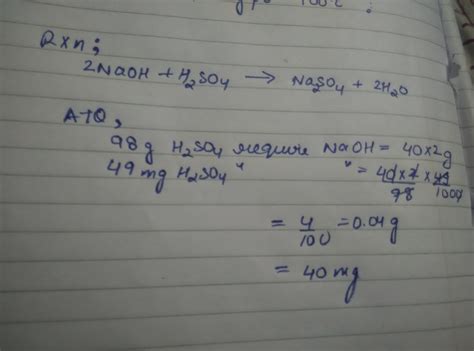 100 c :
Rxn ;
2NaOH + H₂SO₄ → Na₂SO₄ + 2H₂O
ATQ,
98 g H₂SO₄ require NaOH = 40×2 g
49 mg H₂SO₄ " " = 40×2×49/98 1000
= 4/100 = 0.04 g
= 40 mg